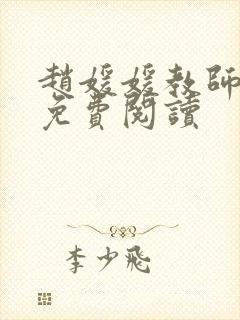 趙媛媛教師
免費閱讀
李少飛